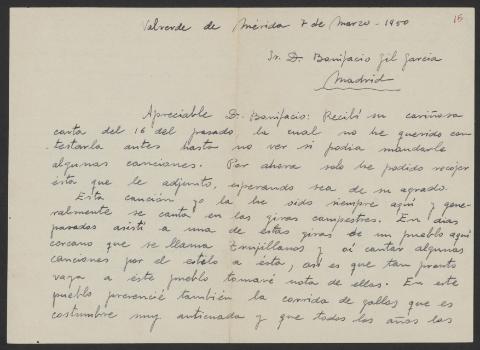 15
Valverde de Mérida 7 de Marzo - 1950
Sr. D. Bonifacio Gil Garcia
Madrid
Apreciable D. Bonifacio: Recibí su cariñosa
carta del 16 del pasado la cual no he querido con-
testarla antes hasta no ver si podia mandarle
algunas canciones. Por ahora solo he podido recojer
ésta que le adjunto, esperando sea de su agrado.
Esta canción yo la he oido siempre aquí y gene-
ralmente se canta en las giras campestres. En dias
pasados asistí a una de estas giras de un pueblo aquí
cercano que se llama Trujillanos y oí cantar algunas
canciones por el estilo a ésta, así es que tan pronto
vaya a éste pueblo tomaré nota de ellas. En este
pueblo presencié también la corrida de gallos que es
costumbre muy anticuada y que todos los años las